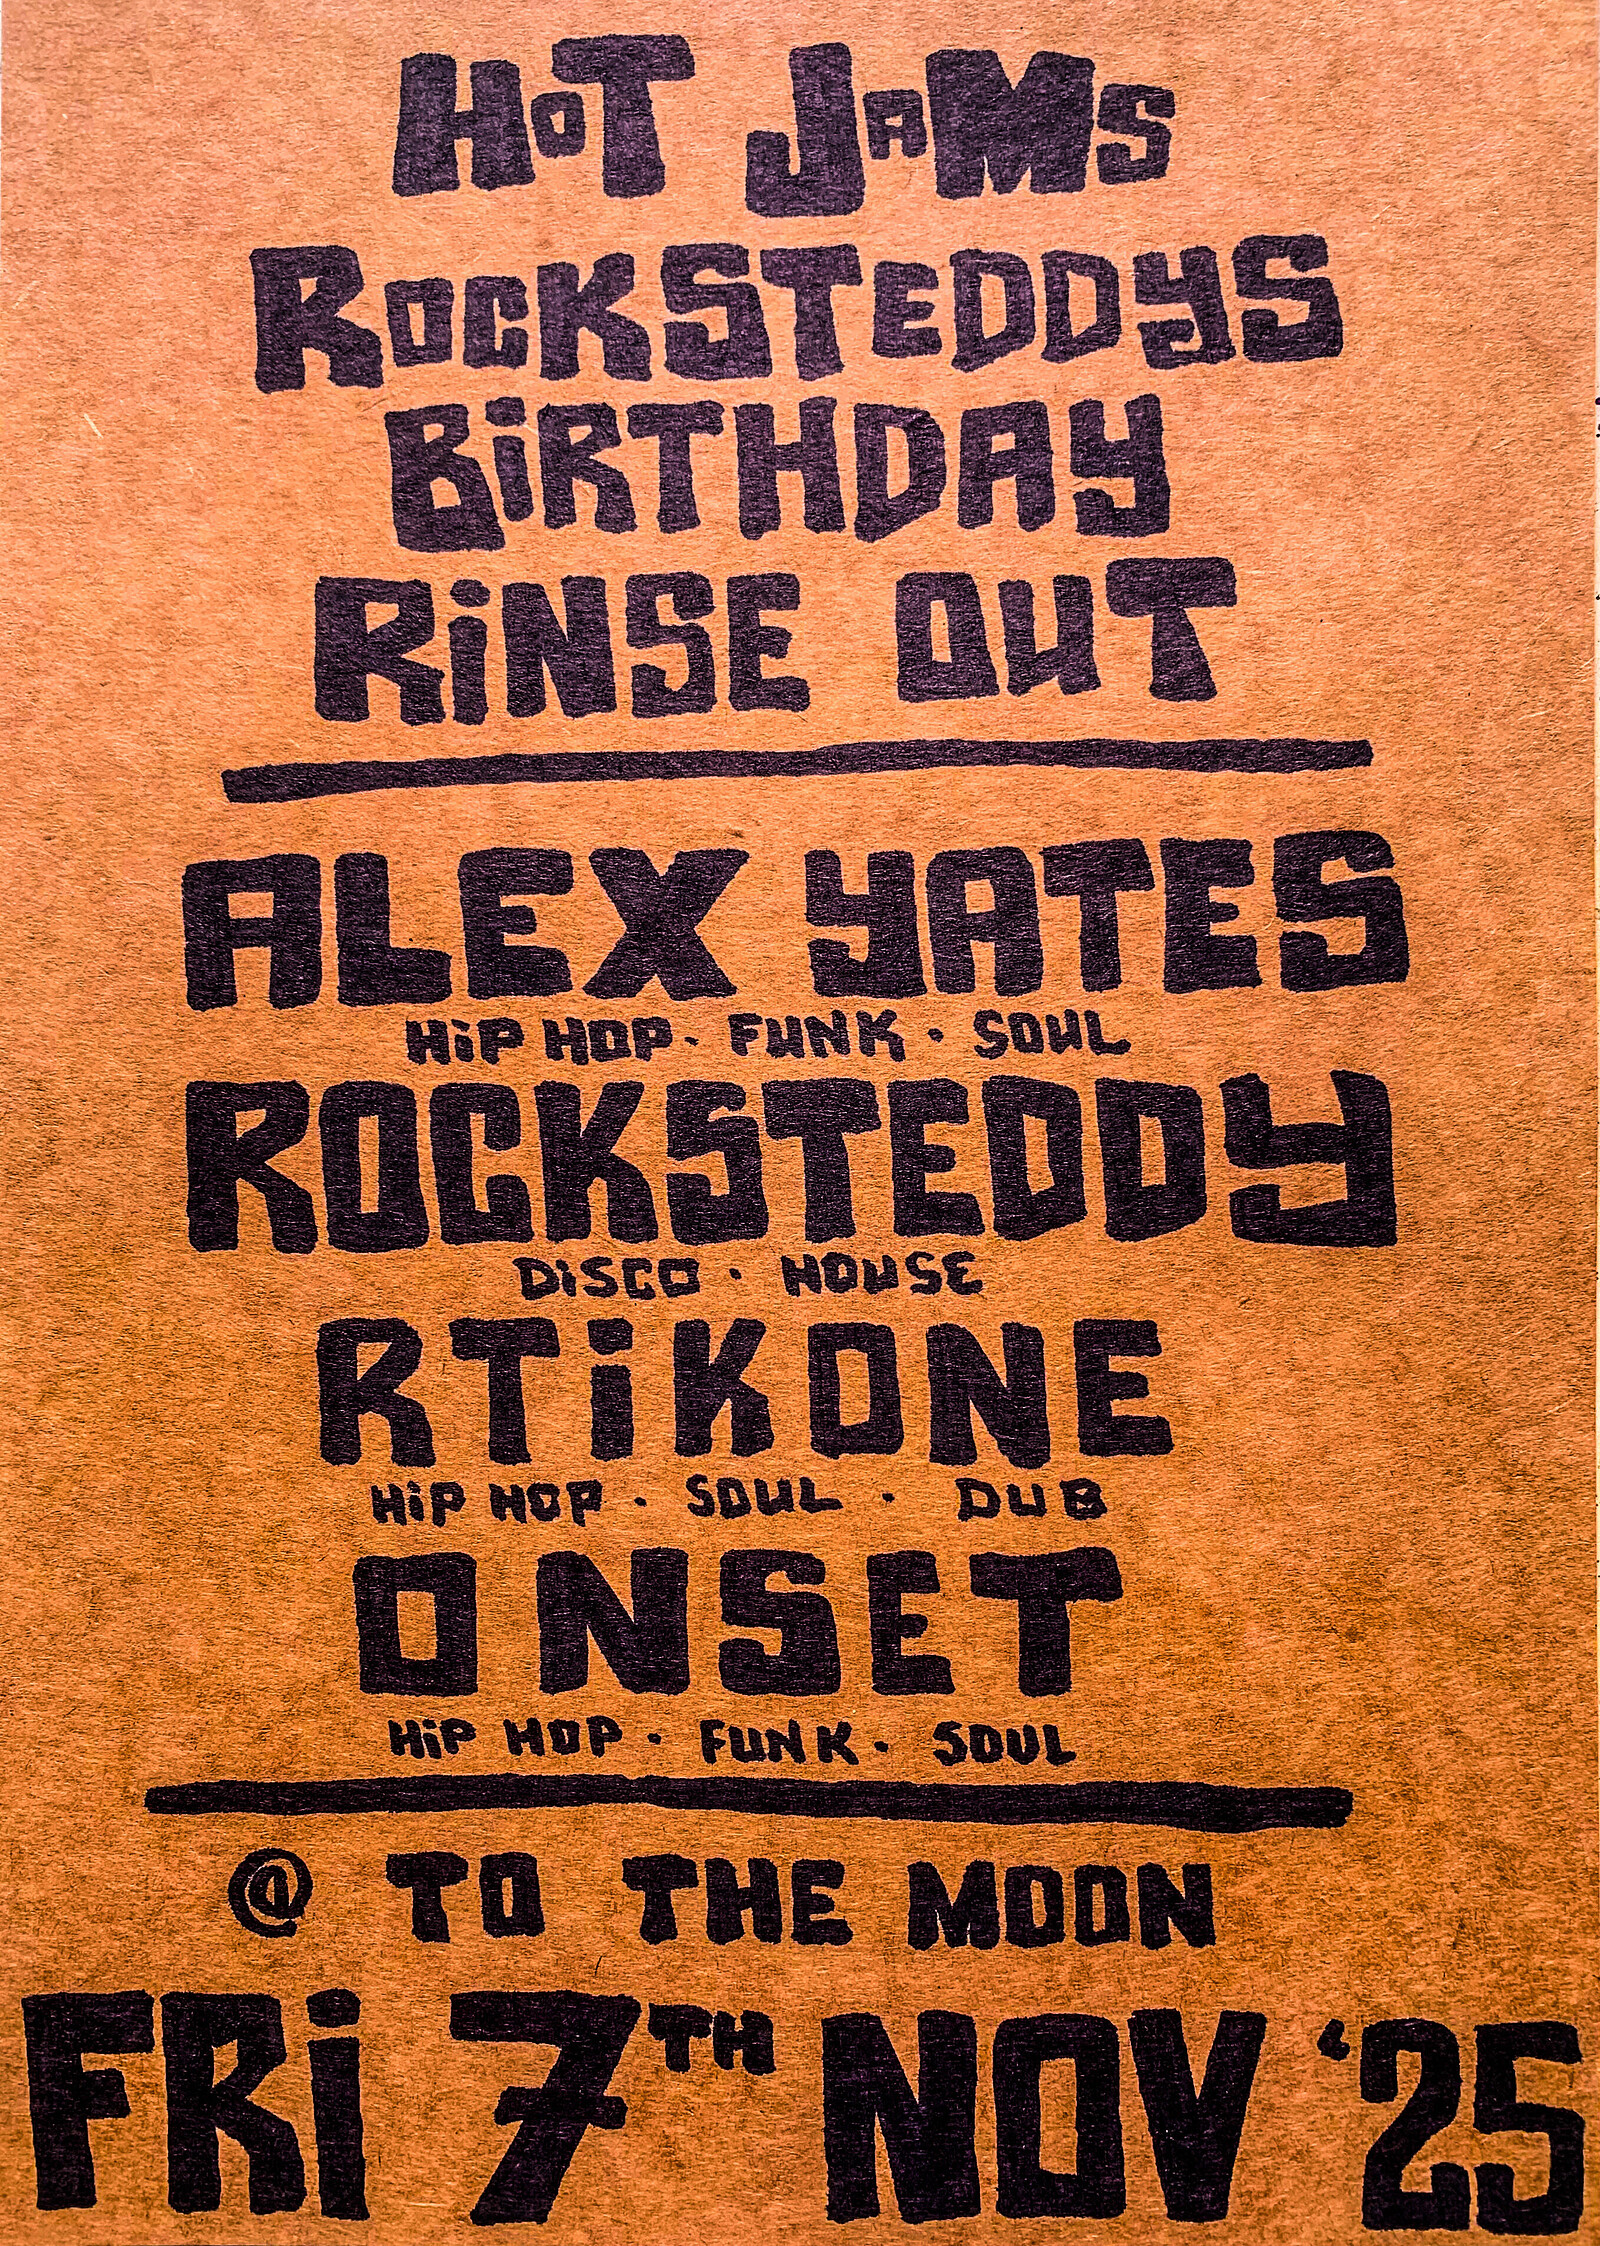 HOT JAMS
ROCKSTEDDYS
BiRTHDAY
RiNSE OUT
ALEX YATES
HiP HOP · FUNK · SOUL
ROCKSTEDDY
DiSCO · HOUSE
RTiKONE
HiP HOP · SOUL · DUB
ONSET
HiP HOP · FUNK · SOUL
@ TO THE MOON
FRi 7TH NOV '25